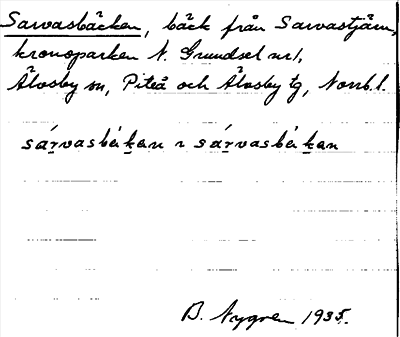 Sarvasbäcken, bäck från Sarvastjärn,
kronoparken N. Grundsel nr 1,
Älvsby sn, Piteå och Älvsby tg, Norrb. l.
sárvasbèḱan ~ sárvasbéḱan
B. Nygren 1935.